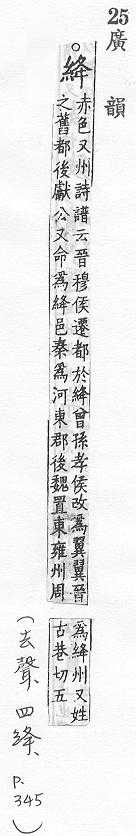 25廣韻
。絳
赤色又州詩譜云晉穆侯遷都於絳曾孫孝侯改爲翼翼晉
之舊都後獻公又命爲絳邑秦爲河東郡後魏置東雍州周
爲絳州又姓
古巷切五
(去聲 四絳、P.345)